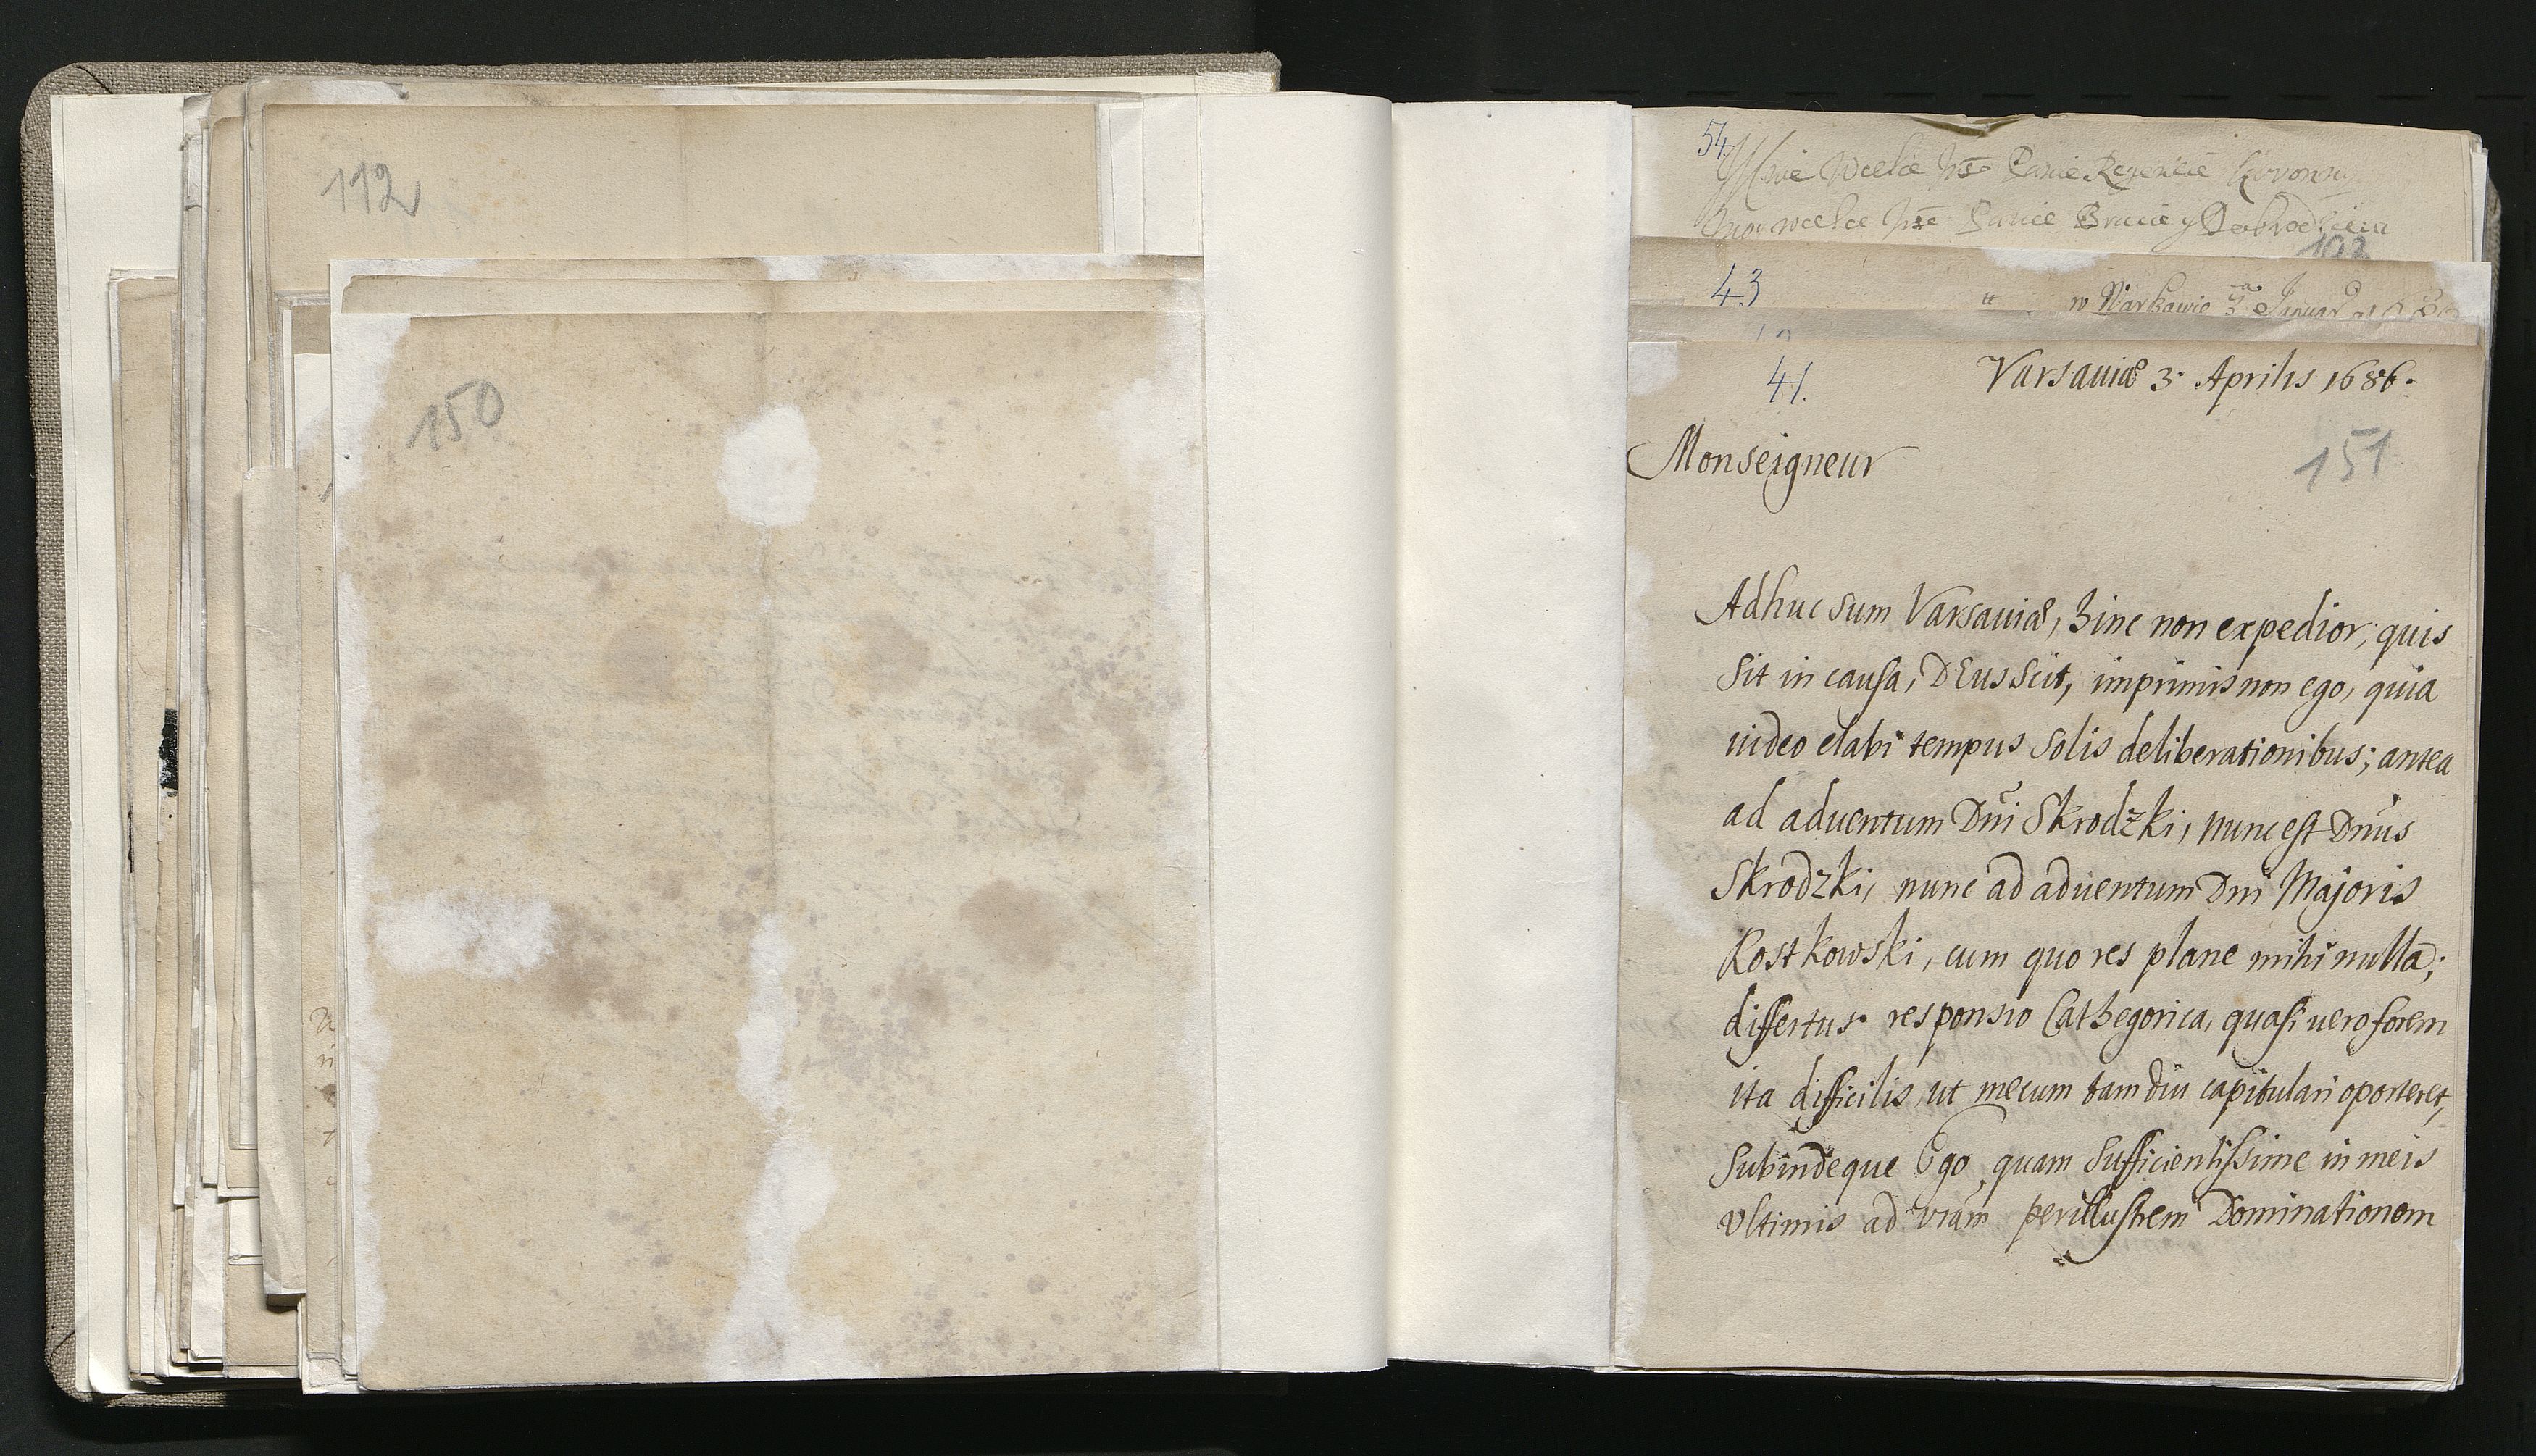 112
150
54.
Panie
Panie
102
43
3 Januar
41.
Varsaviæ 3. Aprilis 1686.
151
Monseigneur
Adhuc sum Varsaviæ, hinc non expedior, quis
sit in causa, DEus scit, imprimis non ego, quia
uideo elabi tempus solis deliberationibus; antea
ad aduentum Dñi Skrodzki, nunc est Dñus
Skrodzki, nunc ad aduentum Dni Majoris
Rostkowski, cum quo res plane mihi nulla;
differtur responsio Cathegorica, quasi uero forem
ita difficilis, ut mecum tam diu capitulari oporteret,
Subindeque Ego, quam Sufficientissime in meis
Vltimis ad Vram perillustrem Dominationem